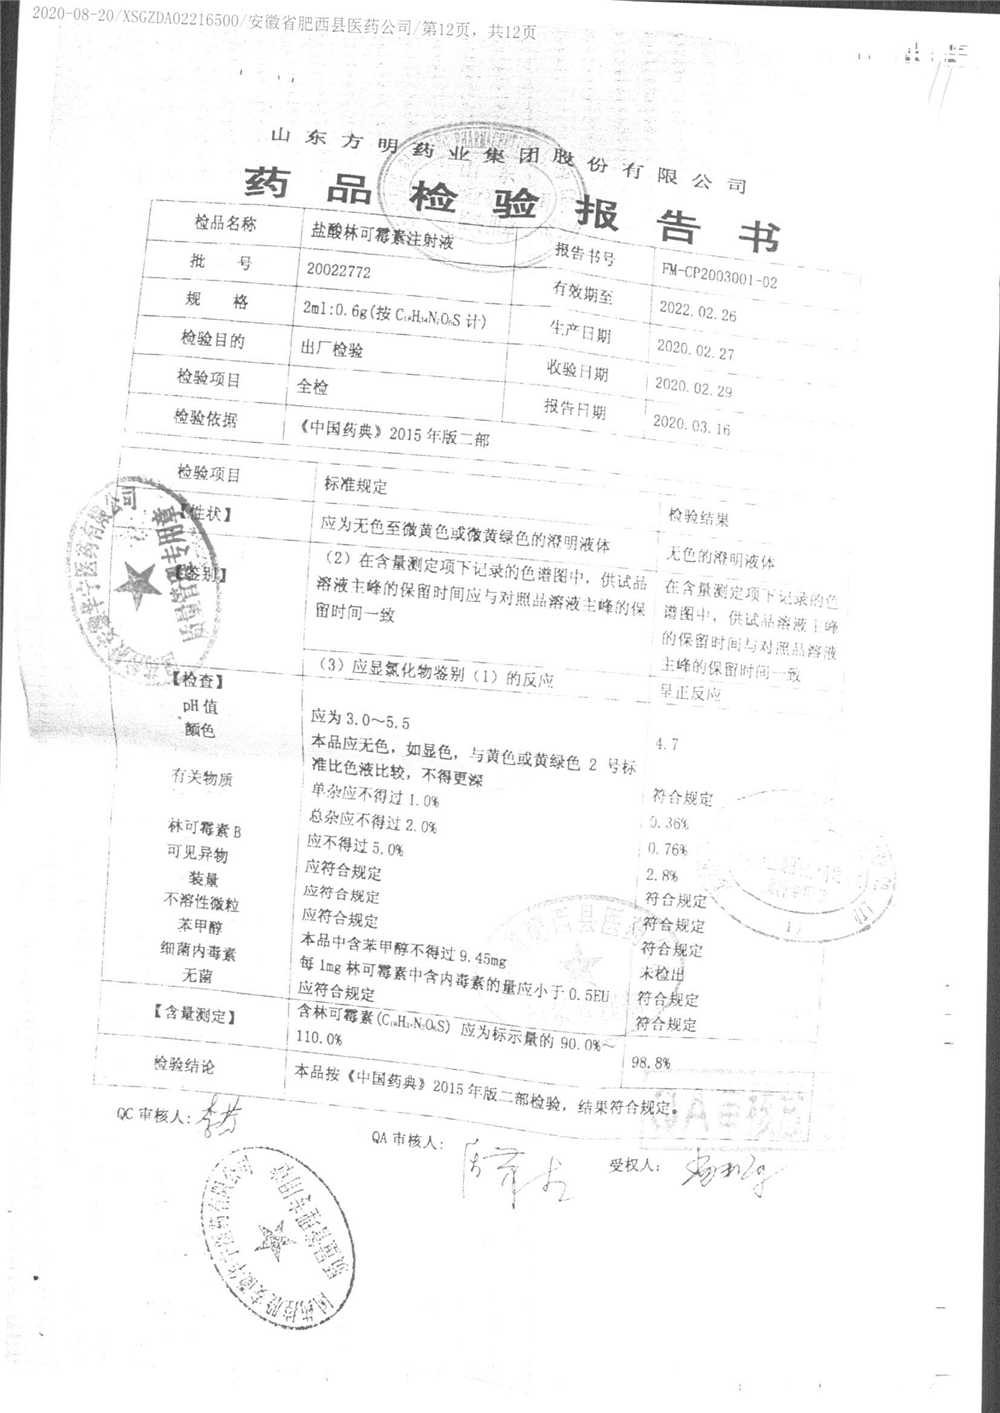 2020-08-20/XSGZDA02216500/安徽省肥西县医药公司/第12页，共12页
山东方明药业集团股份有限公司
药品检验报告书
检品名称 盐酸林可霉素注射液 报告书号 FM-CP2003001-02
批号 20022772 有效期至 2022.02.26
规格 2ml:0.6g(按C₁₈H₃₄N₂O₆S计) 生产日期 2020.02.27
检验目的 出厂检验 收验日期 2020.02.29
检验项目 全检 报告日期 2020.03.16
检验依据 《中国药典》2015年版二部
检验项目 标准规定 检验结果
【性状】 应为无色至微黄色或微黄绿色的澄明液体 无色的澄明液体
【鉴别】 （2）在含量测定项下记录的色谱图中，供试品 在含量测定项下记录的色
溶液主峰的保留时间应与对照品溶液主峰的保 谱图中，供试品溶液主峰
留时间一致 的保留时间与对照品溶液
主峰的保留时间一致
（3）应显氯化物鉴别（1）的反应 呈正反应
【检查】
pH值 应为3.0～5.5 4.7
颜色 本品应无色，如显色，与黄色或黄绿色 2 号标
准比色液比较，不得更深 符合规定
有关物质 单杂应不得过1.0% 0.36%
总杂应不得过2.0% 0.76%
林可霉素B 应不得过5.0% 2.8%
可见异物 应符合规定 符合规定
装量 应符合规定 符合规定
不溶性微粒 应符合规定 符合规定
苯甲醇 本品中含苯甲醇不得过9.45mg 未检出
细菌内毒素 每1mg林可霉素中含内毒素的量应小于0.5EU 符合规定
无菌 应符合规定 符合规定
【含量测定】 含林可霉素(C₁₈H₃₄N₂O₆S) 应为标示量的90.0%～
110.0% 98.8%
检验结论 本品按《中国药典》2015年版二部检验，结果符合规定。
QC审核人:
QA审核人:
受权人:
质量管理专用章
质量管理专用章